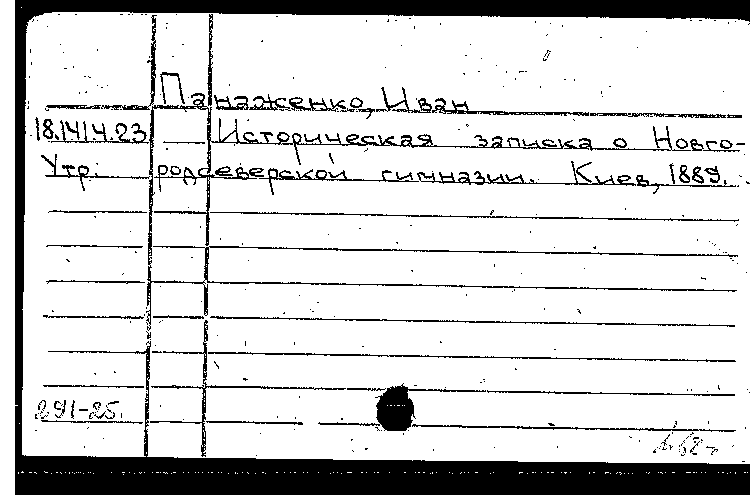 Панаженко, Иван
18.141 4.23 Историческая записка о Новго-
Утр. родсеверской гимназии. Киев, 1889.
291-25.